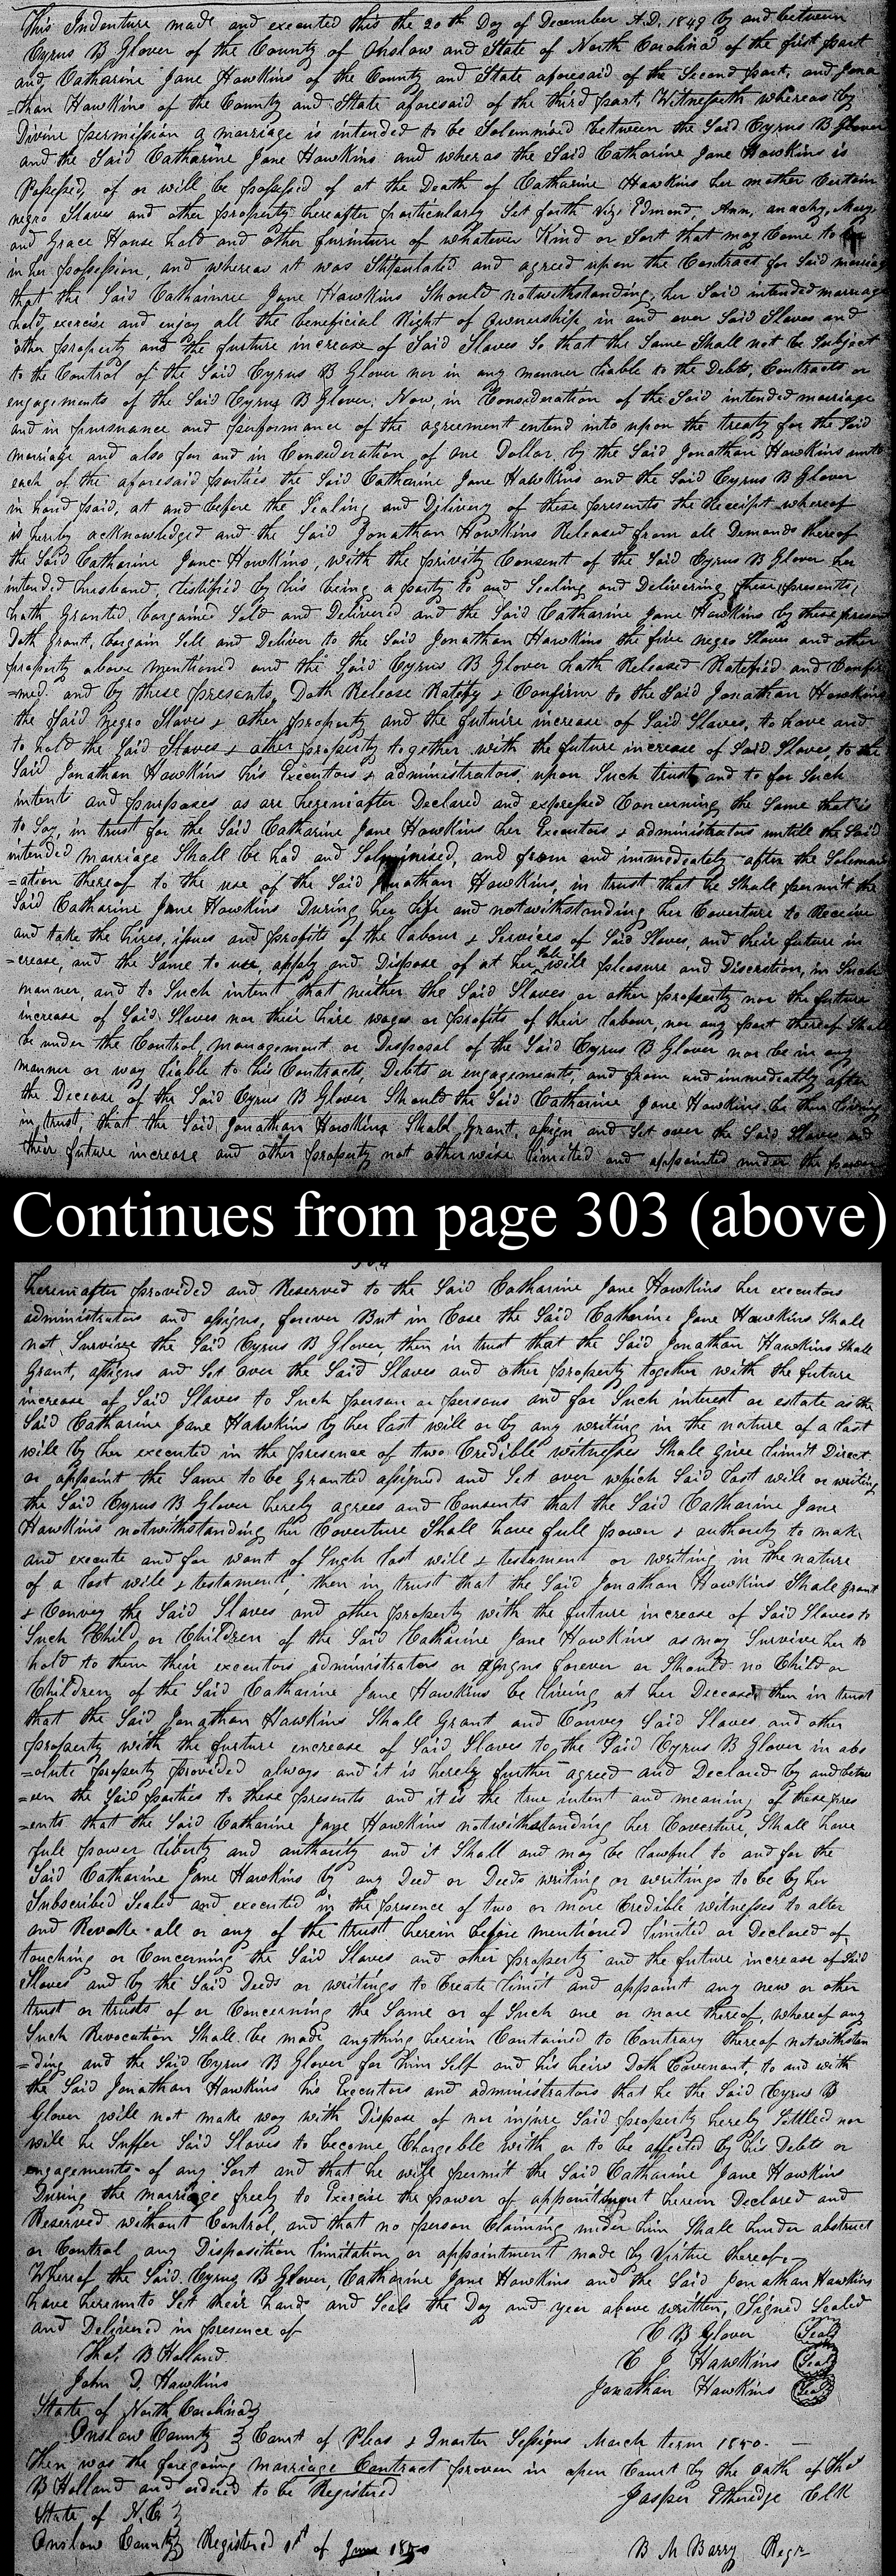 This Indenture made and executed this the 20th Day of December A.D. 1849 by and between
Cyrus B Glover of the County of Onslow and State of North Carolina of the first part
and Catharine Jane Hawkins of the County and State aforesaid of the Second part, and Jona
=than Hawkins of the County and State aforesaid of the third part, Witnesseth whereas by
Divine permission a marriage is intended to be Solemnised between the Said Cyrus B Glover
and the Said Catharine Jane Hawkins and wheras the Said Catharine Jane Hawkins is
Possessed, of or will be possessed of at the Death of Catharine Hawkins her mother Certain
negro Slaves and other property hereafter particularly Set forth Viz. Edmond, Ann, anachy, Mary,
and Grace House hold and other furniture of whatever Kind or Sort that may Come to
in her possession, and whereas it was Stipulated and agreed upon the Contract for Said marriag
that the Said Catharine Jane Hawkins Should notwithstanding, her Said intended marriage
hold, exercise and enjoy all the beneficial Right of ownership, in and over Said Slaves and
other property and the further increase of Said Slaves So that the Same Shall not be Subject
to the Control of the Said Cyrus B Glover nor in any manner liable to the Debts, Contracts or
engagements of the Said Cyrus B Glover. Now, in Consideration of the Said intended marriage
and in pursuance and performance of the agreement entend into upon the treaty for the Said
marriage and also for and in Consideration of one Dollar, by the Said Jonathan Hawkins unto
each of the aforesaid parties the Said Catharine Jane Hawkins and the Said Cyrus B Glover
in hand paid, at and before the Sealing and Delivery of these presents the Receipt whereof
is hereby acknowledged and the Said Jonathan Hawkins Released from all Demands thereof
the Said Catharine Jane Hawkins, with the privity Consent of the Said Cyrus B Glover her
intended husband, testified by his being a party to and Sealing and Delivering these presents,
hath Granted, bargained Sold and Delivered and the Said Catharine Jane Hawkins by these presen
Doth Grant, bargain Sell and Deliver to the Said Jonathan Hawkins the five negro Slaves and other
property above mentioned and the Said Cyrus B Glover hath Released Ratefied and Confir
=med. and by these presents, Doth Release Ratefy & Confirm to the Said Jonathan Hawkins
the Said negro Slaves & other property and the future increase of Said Slaves, to have and
to hold the Said Slaves & other property together with the future increase of Said Slaves, to the
Said Jonathan Hawkins his Executors & administrators, upon Such trusts and to for Such
intents and purposes as are hereinafter Declared and expressed Concerning the Same that is
to Say, in trust for the Said Catharine Jane Hawkins her Executors & administrators untill the Said
intended marriage Shall be had and Solminised, and from and immediately after the Solemni
=ation thereof to the use of the Said Jonathan Hawkins, in trust that he Shall permit the
Said Catharine Jane Hawkins During her life and notwithstanding her Coverture to Receive
and take the hires, issues and profits of the labour & Services of Said Slaves, and their future in
=crease, and the Same to use, apply and Dispose of at her Sole will pleasure and Discretion, in Such
manner, and to Such intent that neither the Said Slaves or other property nor the future
increase of Said Slaves nor their hire wages or profits of their labour, nor any part thereof Shall
be under the Control, management, or Disposal of the Said Cyrus B Glover nor be in any
manner or way liable to his Contracts, Debts or engagements, and from and immediatly after
the Decease of the Said Cyrus B Glover Should the Said Catharine Jane Hawkins be then living
in trust, that the Said Jonathan Hawkins Shall Grant, assign and Set over the Said Slaves and
their future increase and other property not otherwise limited and appointed under the power
Continues from page 303 (above)
hereinafter provided and Reserved to the Said Catharine Jane Hawkins her executors
administrators and assigns, forever But in Case the Said Catharine Jane Hawkins Shall
not Survive the Said Cyrus B Glover, then in trust that the Said Jonathan Hawkins Shall
Grant, assigns and Set over the Said Slaves and other property together with the future
increase of Said Slaves to Such person or persons and for Such interest or estate as the
Said Catharine Jane Hawkins by her last will or by any writing in the nature of a last
will by her executed in the presence of two Credible witnesses Shall give limit Direct
or appoint the Same to be Granted assigned and Set over which Said last will or writing
the Said Cyrus B Glover hereby agrees and Consents that the Said Catharine Jane
Hawkins notwithstanding her Coverture Shall have full power & authority to make
and execute and for want of Such last will & testament or writing in the nature
of a last will & testament, then in trust that the Said Jonathan Hawkins Shall grant
& Convey the Said Slaves and other property with the future increase of Said Slaves to
Such Child or Children of the Said Catharine Jane Hawkins as may Survive her to
hold to them their executors administrators or assigns forever or Should no Child or
Children of the Said Catharine Jane Hawkins be living at her Decease, then in trust
that the Said Jonathan Hawkins Shall Grant and Convey Said Slaves and other
property with the further increase of Said Slaves to the Said Cyrus B Glover in abs
=olute property provided always and it is hereby further agreed and Declared by and betw
=een the Said parties to these presents and it is the true intent and meaning of these pres
=ents that the Said Catharine Jane Hawkins notwithstanding her Coverture, Shall have
full power liberty and authority and it Shall and may be lawful to and for the
Said Catharine Jane Hawkins by any Deed or Deeds writing or writings to be by her
Subscribed Sealed and executed in the presence of two or more Credible witnesses to alter
and Revoke all or any of the trust herein before mentioned limited or Declared of,
touching or Concerning the Said Slaves and other property and the future increase of Said
Slaves and by the Said Deeds or writings to Create limit and appoint any new or other
trust or trusts of or Concerning the Same or of Such one or more thereof, whereof any
Such Revocation Shall be made anything herein Contained to Contrary thereof notwithstan
=ding and the Said Cyrus B Glover for him Self and his heirs Doth Covenant, to and with
the Said Jonathan Hawkins his Executors and administrators that he the Said Cyrus B
Glover will not make way with Dispose of nor injure Said property hereby Settled nor
will he Suffer Said Slaves to become Chargeble with or to be affected by his Debts or
engagements of any Sort and that he will permit the Said Catharine Jane Hawkins
During the marriage freely to Exercise the power of appointment herein Declared and
Reserved without Control, and that no person Claiming under him Shall hinder abstruct
or Control any Disposition limitation or appointment made by Virtue thereof
Whereof the Said Cyrus B Glover, Catharine Jane Hawkins and the Said Jonathan Hawkins
have hereunto Set their hands and Seals the Day and year above written, Signed Sealed
and Delivered in presence of
C B Glover (Seal)
Thos. B Holland
C J Hawkins (Seal)
John D. Hawkins
Jonathan Hawkins (Seal)
State of North Carolina}
Onslow County } Court of Pleas & Quarter Sessions March term 1850
Then was the foregoing marriage Contract proven in open Court by the oath of Thos
B Holland and ordered to be Registered
Jasper Etheridge Clk
State of N.C }
Onslow County} Registered 1st of June 1850
B M Barry Regr